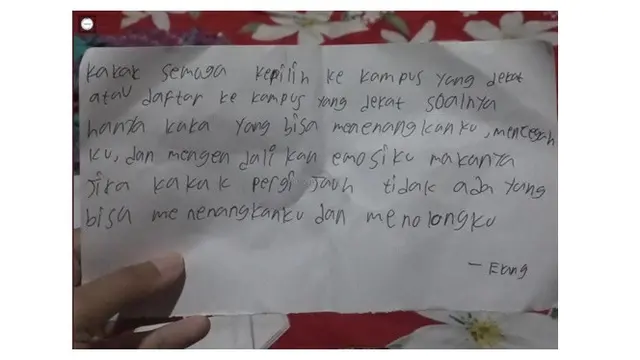 kakak semuga kepilih ke kampus yang dekat
atau daftar ke kampus yang dekat soalnya
hanya kaka yang bisa menenangkanku, mencegah
ku, dan mengen dali kan emosiku makanya
jika kakak pergi jauh tidak ada yang
bisa me nenangkanku dan menolongku
— Elang